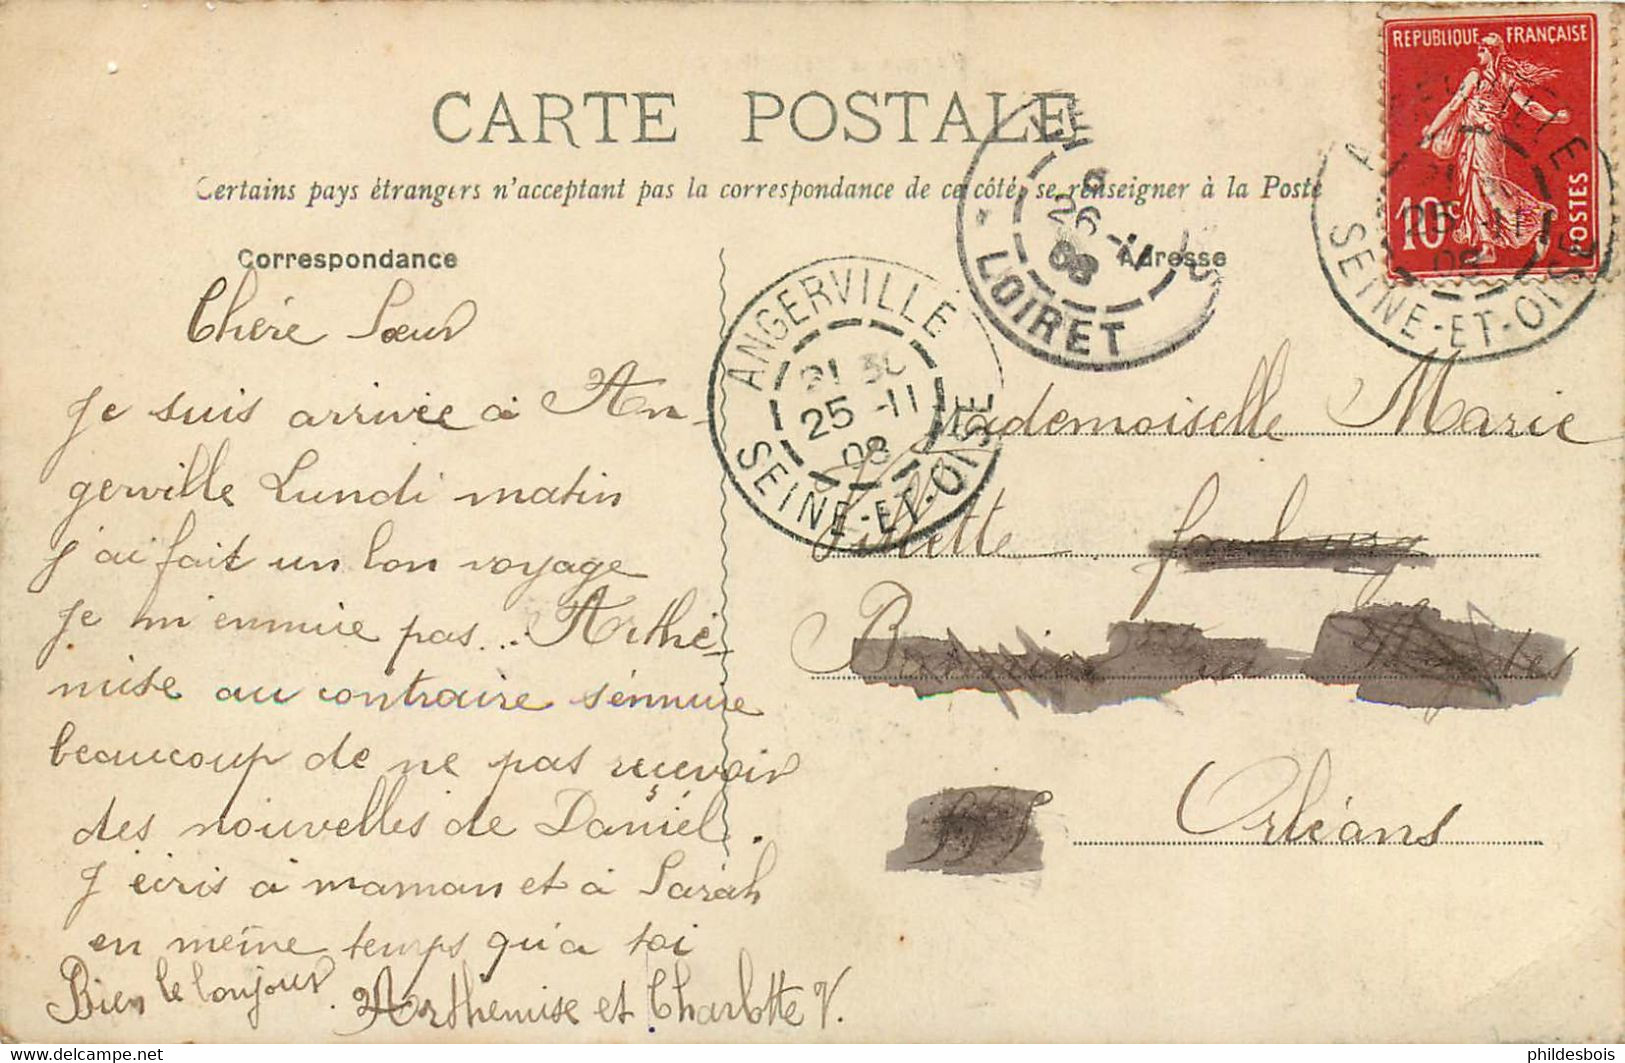 REPUBLIQUE FRANÇAISE
10c POSTES
CARTE POSTALE
Certains pays étrangers n'acceptent pas la correspondance de ce côté, se renseigner à la Poste
Correspondance
Chére Sœur
Je suis arrivée à An-
gerville Lundi matin
j'ai fait un bon voyage
je m'ennuie pas... Arthé-
mise au contraire s'ennuie
beaucoup de ne pas reçevoir
des nouvelles de Daniel.
J'écris à maman et à Sarah
en même temps qu'a toi
Bien le bonjour.
Arthemise et Charlotte V.
ANGERVILLE
21 30
25 -11
08
SEINE-ET-OISE
26 -11
08
LOIRET
25 -11
08
SEINE-ET-OISE
Adresse
Mademoiselle Marie
faubourg
Orléans
delcampe.net
phildesbois